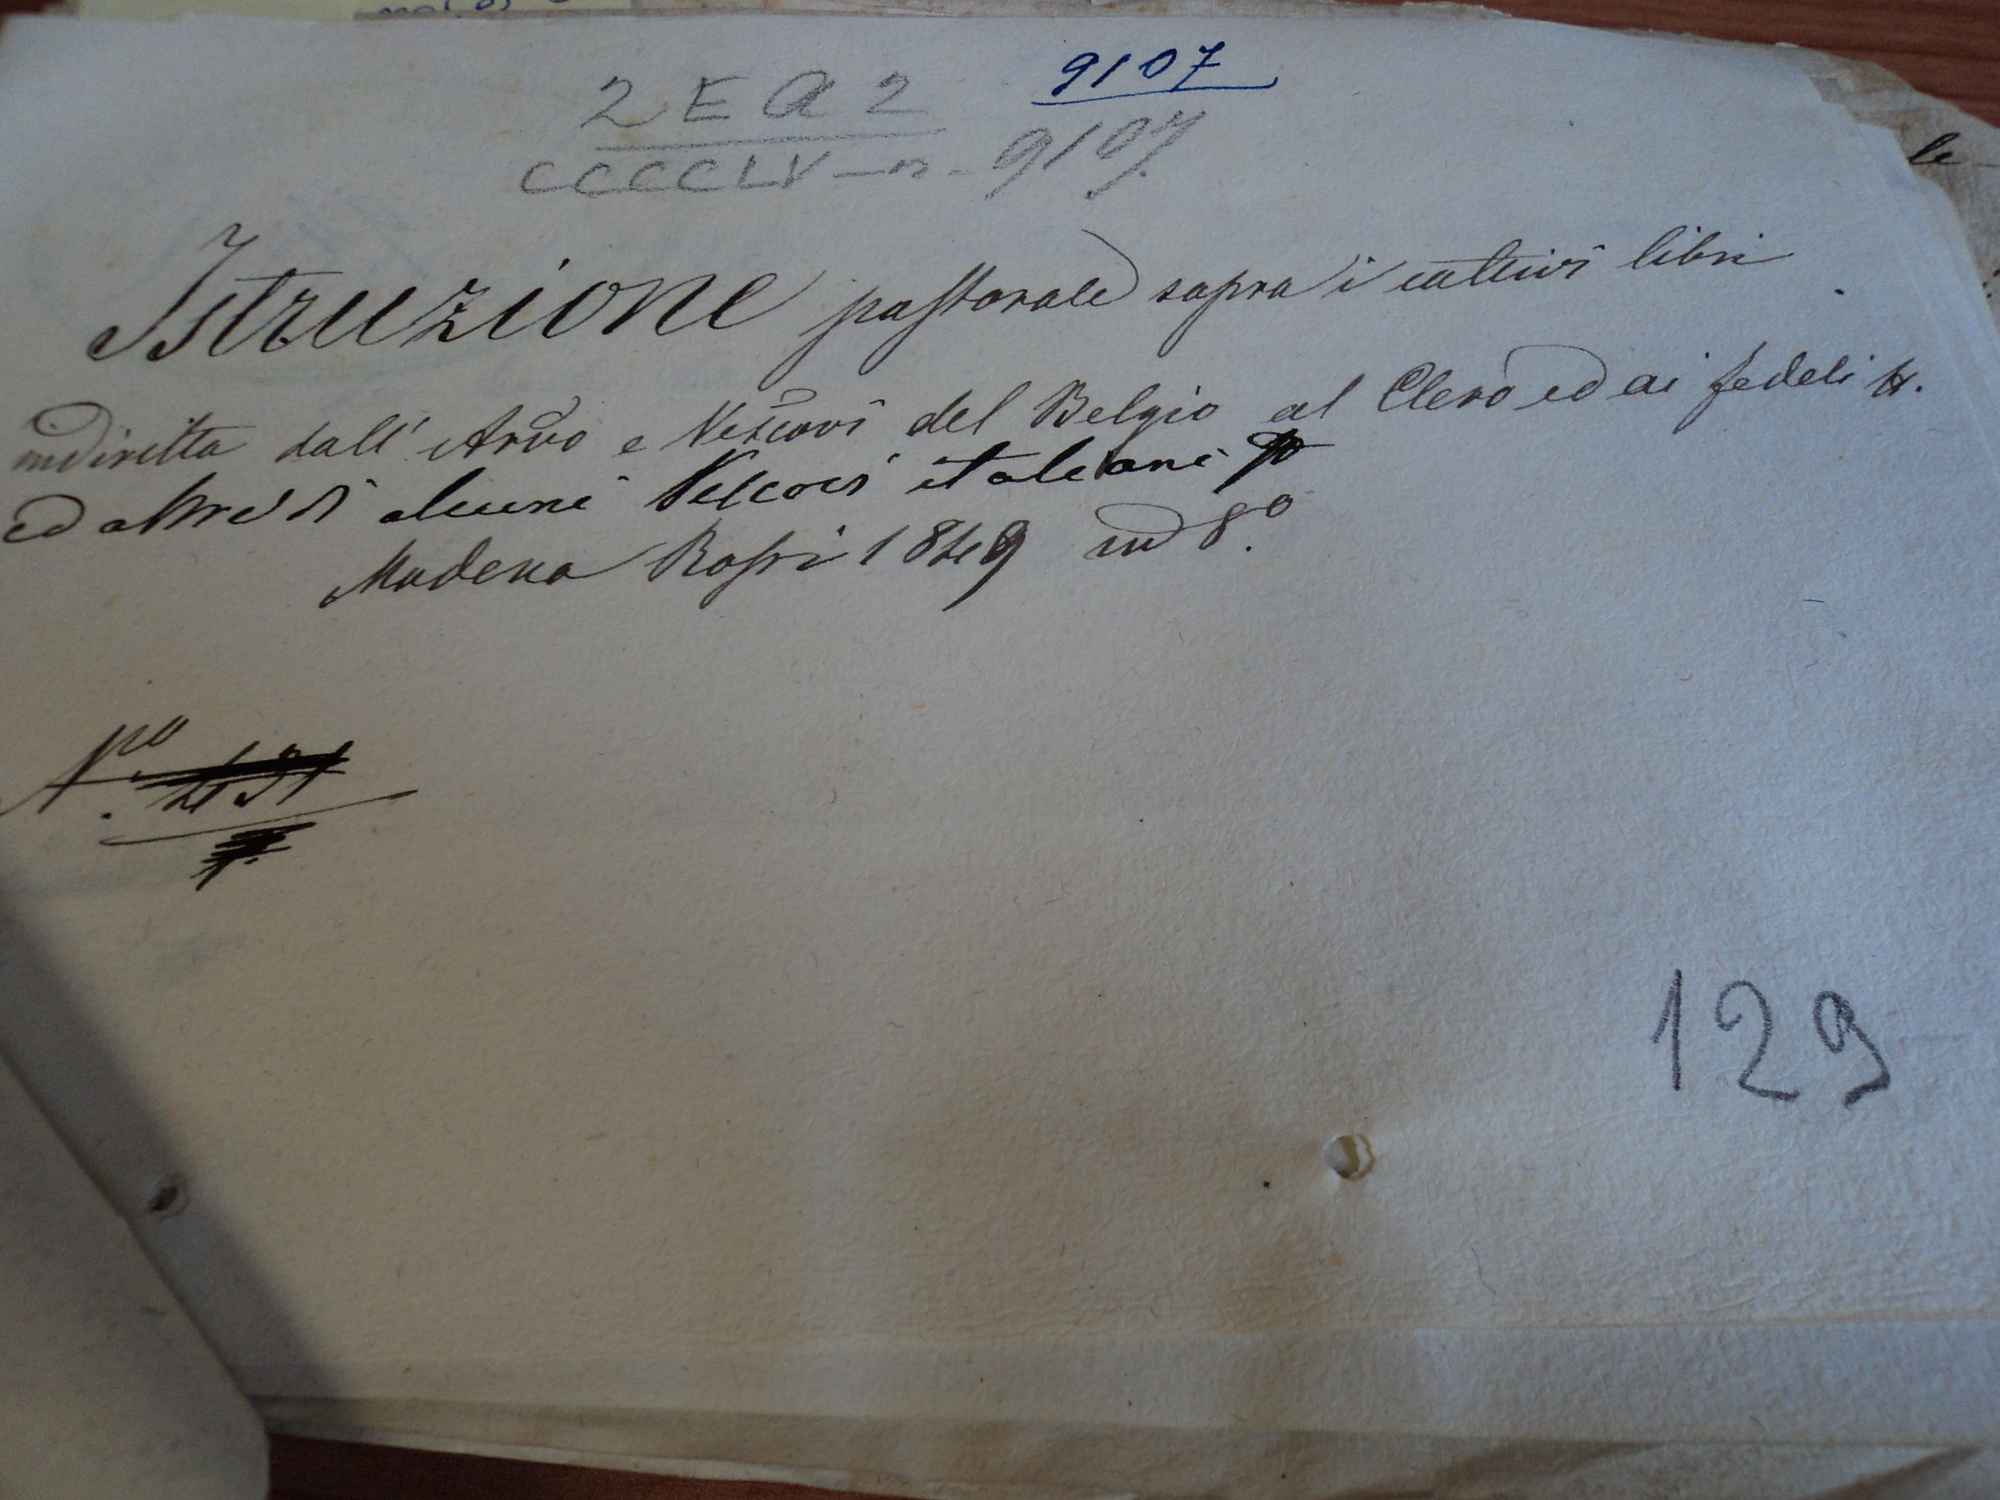 9107
2 E A 2
CCCCLV - n - 9107
Istruzione pastorale sopra i cattivi libri
indiritta dall' Arvo e Vescovi del Belgio al Clero ed ai fedeli
ed altre di alcuni Vescovi italiani
Modena Rossi 1849 in 8.o
N.ro
129
le